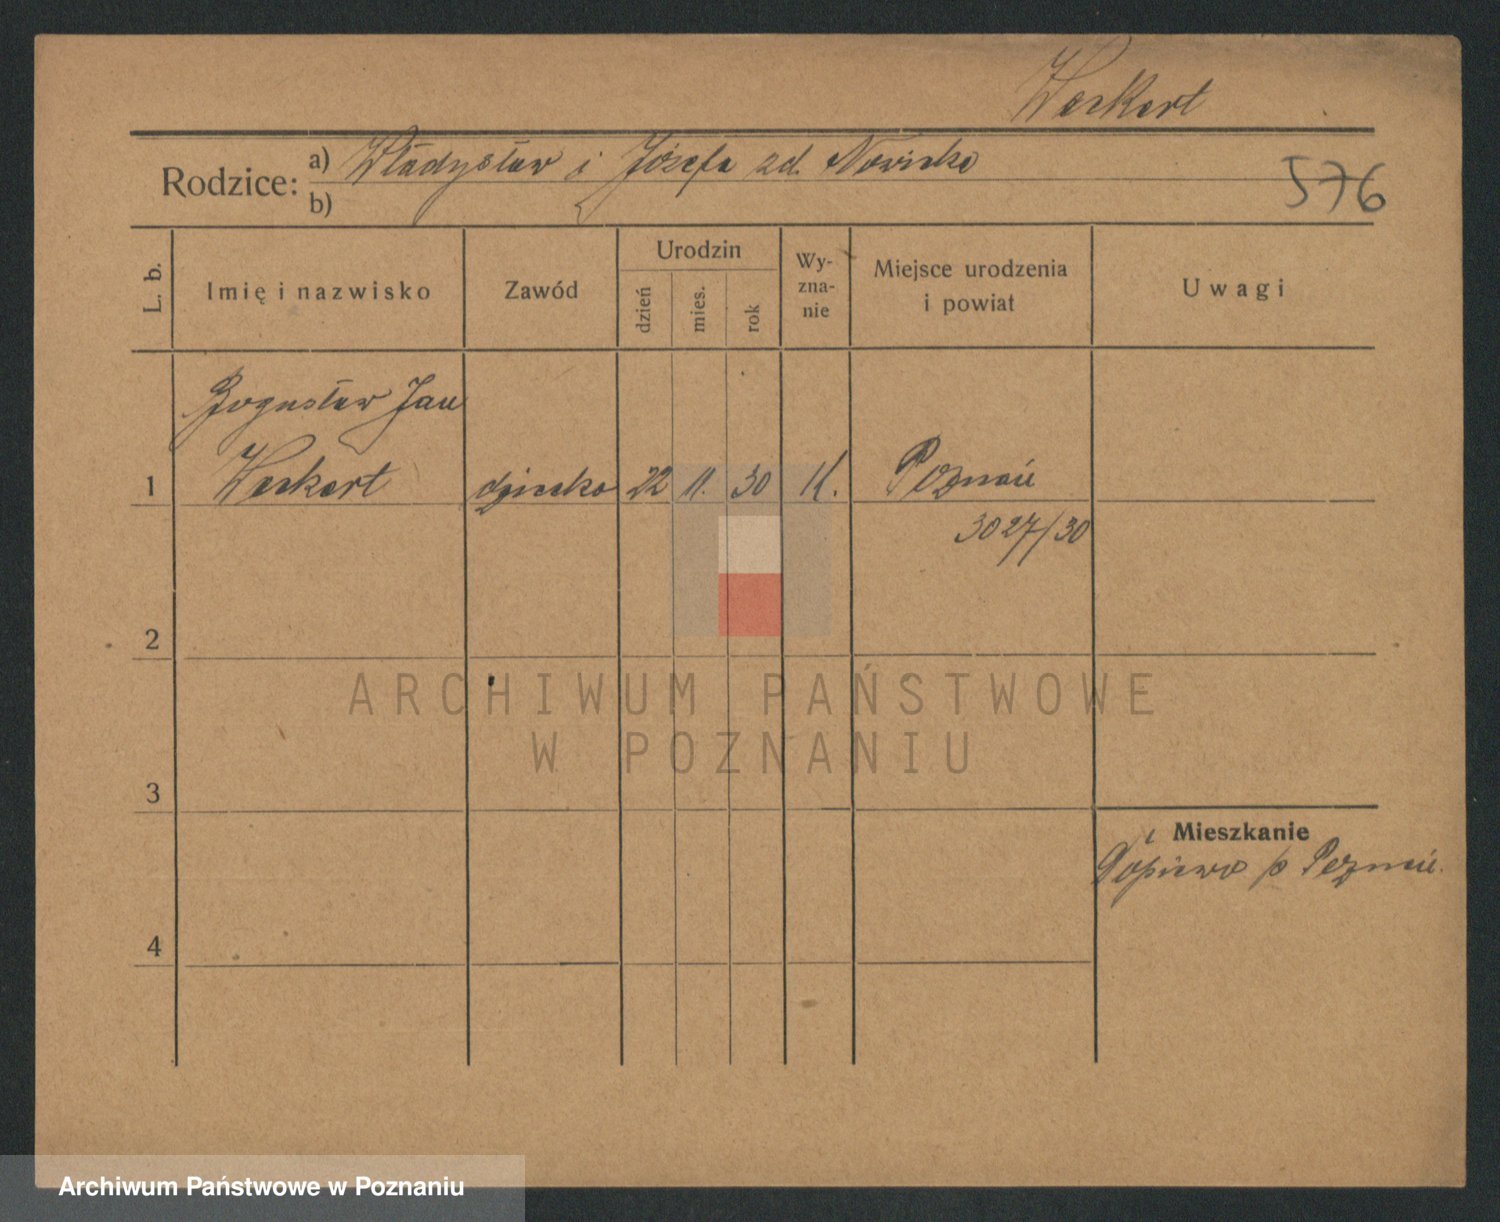 Weckert
Rodzice: a) Władysław i Józefa zd. Nowicka
b)
576
L. b.
Imię i nazwisko
Zawód
Urodzin
dzień
mies.
rok
Wy-
zna-
nie
Miejsce urodzenia
i powiat
Uwagi
Bogusław Jan
1 Weckert dziecko 22 11. 30 K. Poznań
3027/30
2
ARCHIWUM PAŃSTWOWE
W POZNANIU
3
Mieszkanie
Dopiewo p Poznań.
4
Archiwum Państwowe w Poznaniu